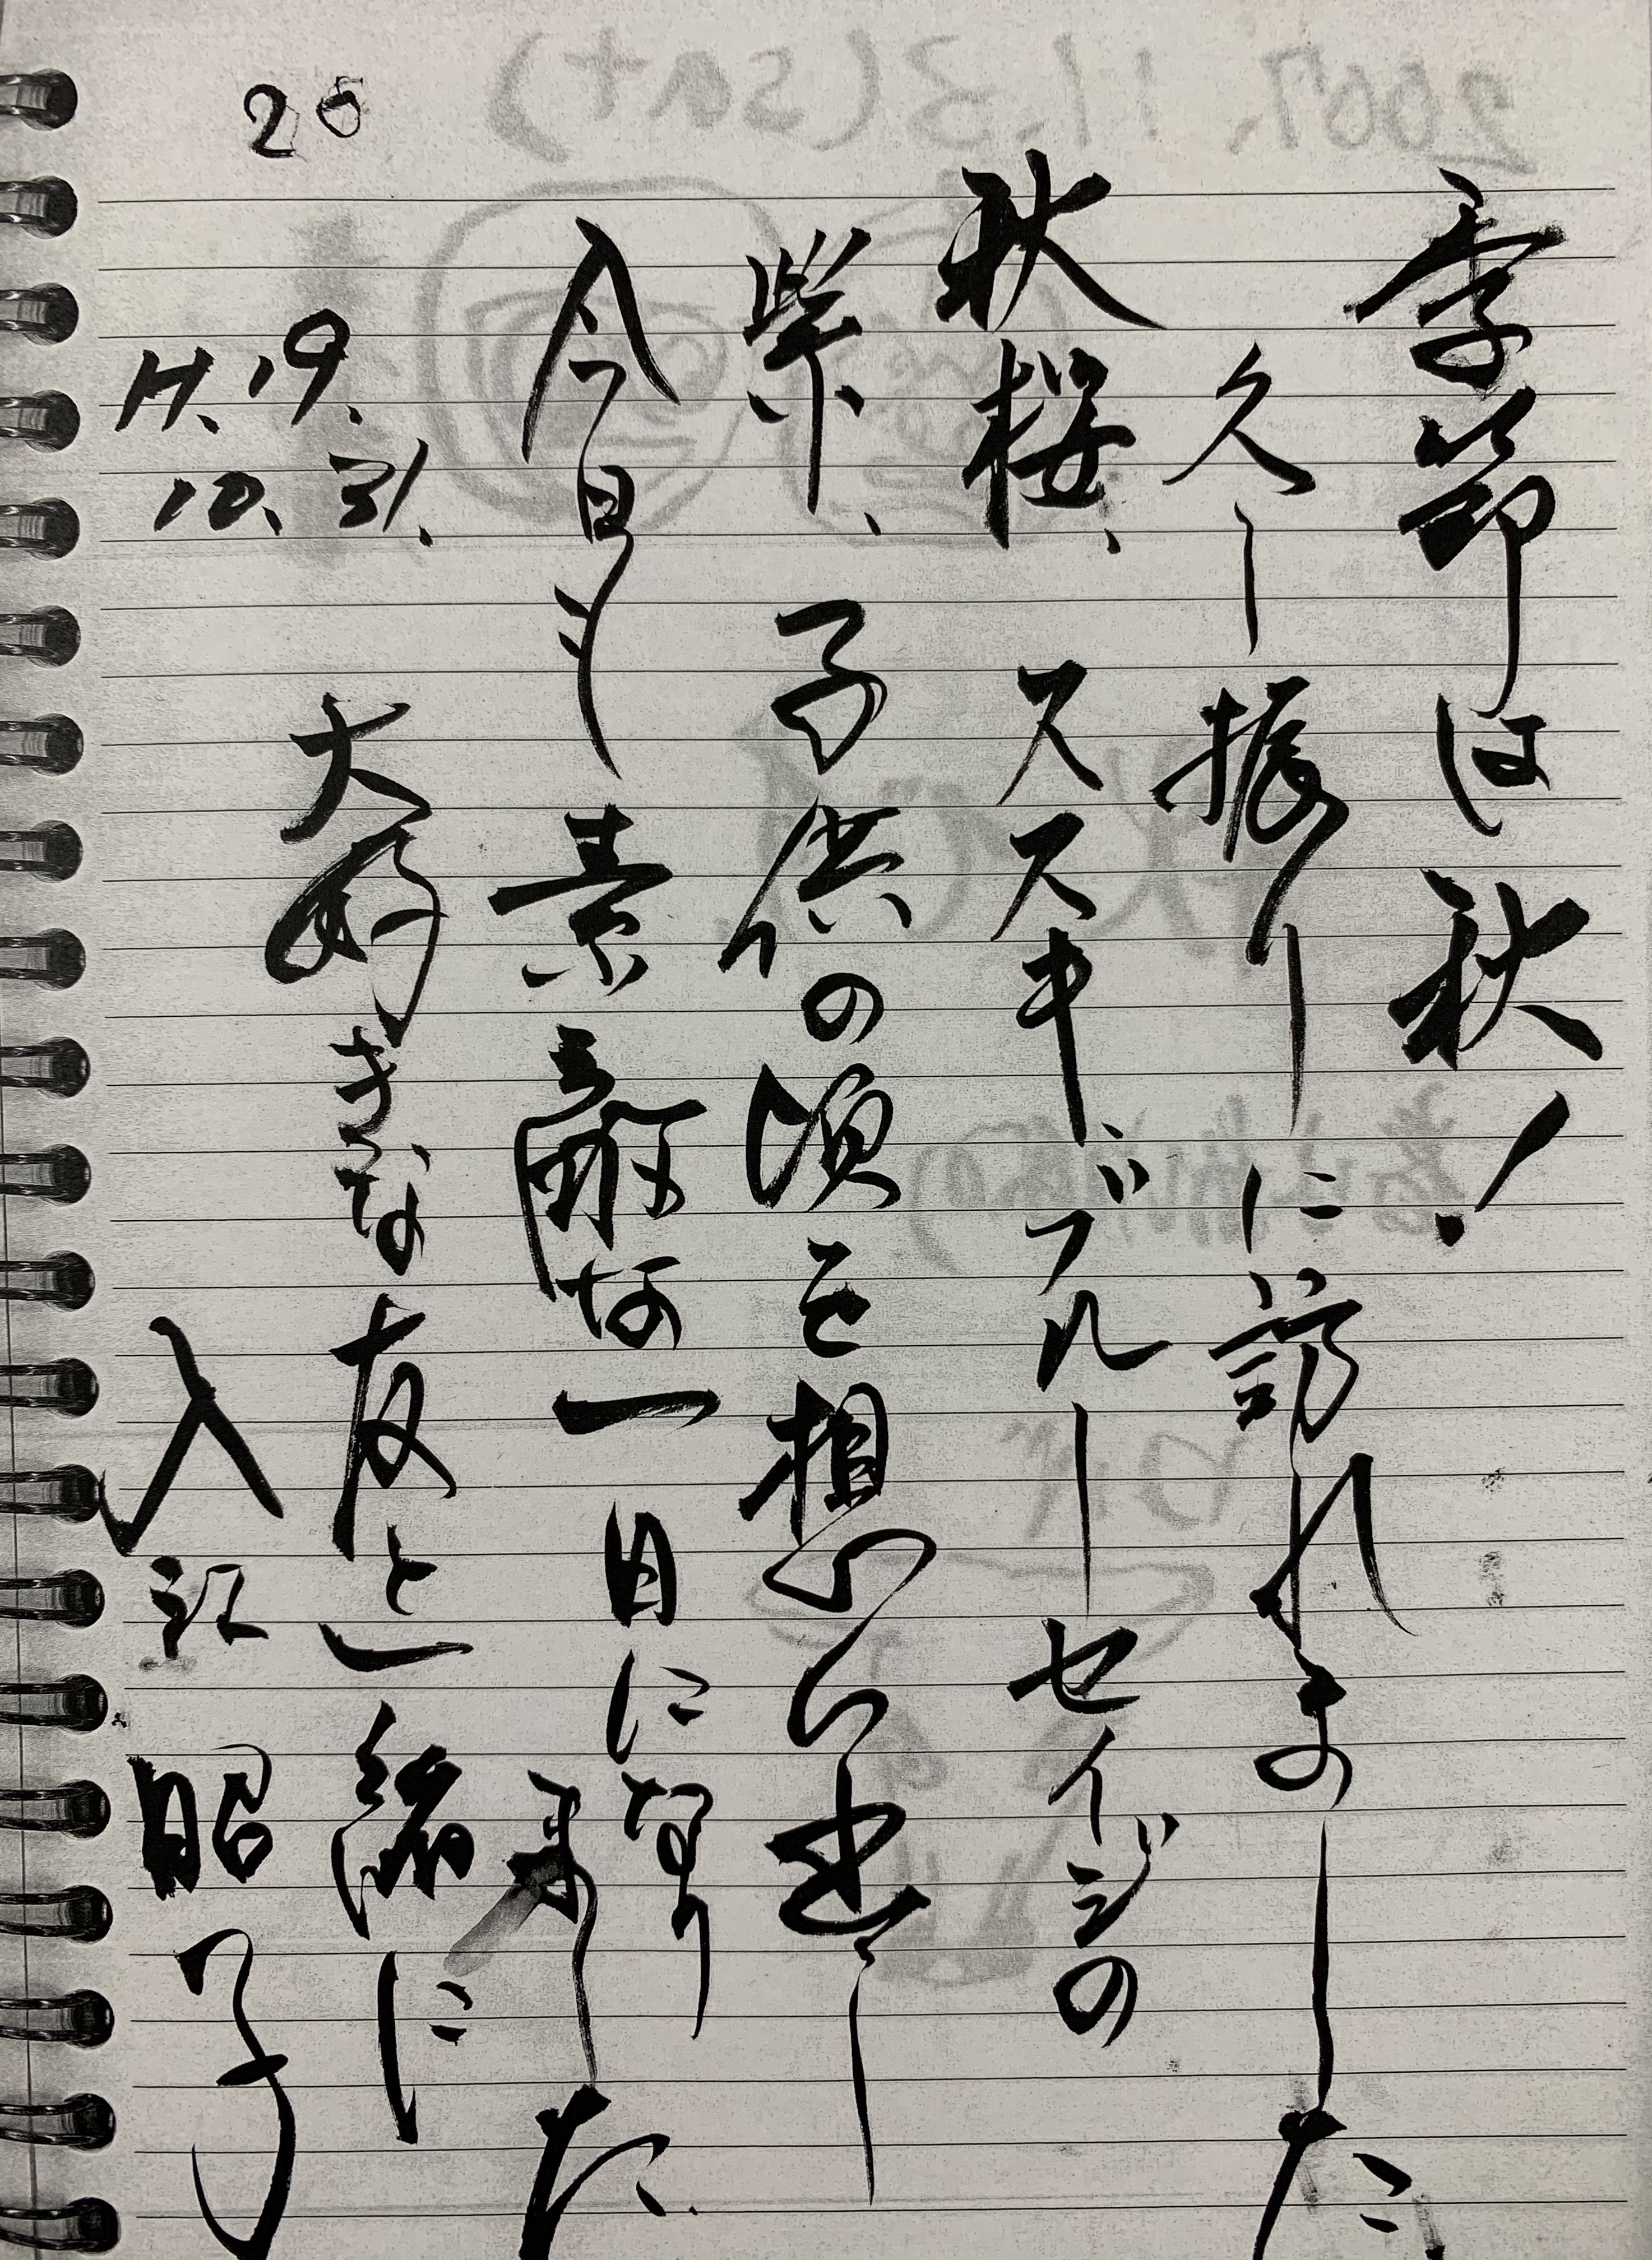 季節は秋！
久し振りに訪れました
秋桜、ススキ ブルーセイジの
紫、子供の頃を想い出し
今日も素敵な一日になりました
大好きな友と一緒に
H.19.
10.31.
入 昭子